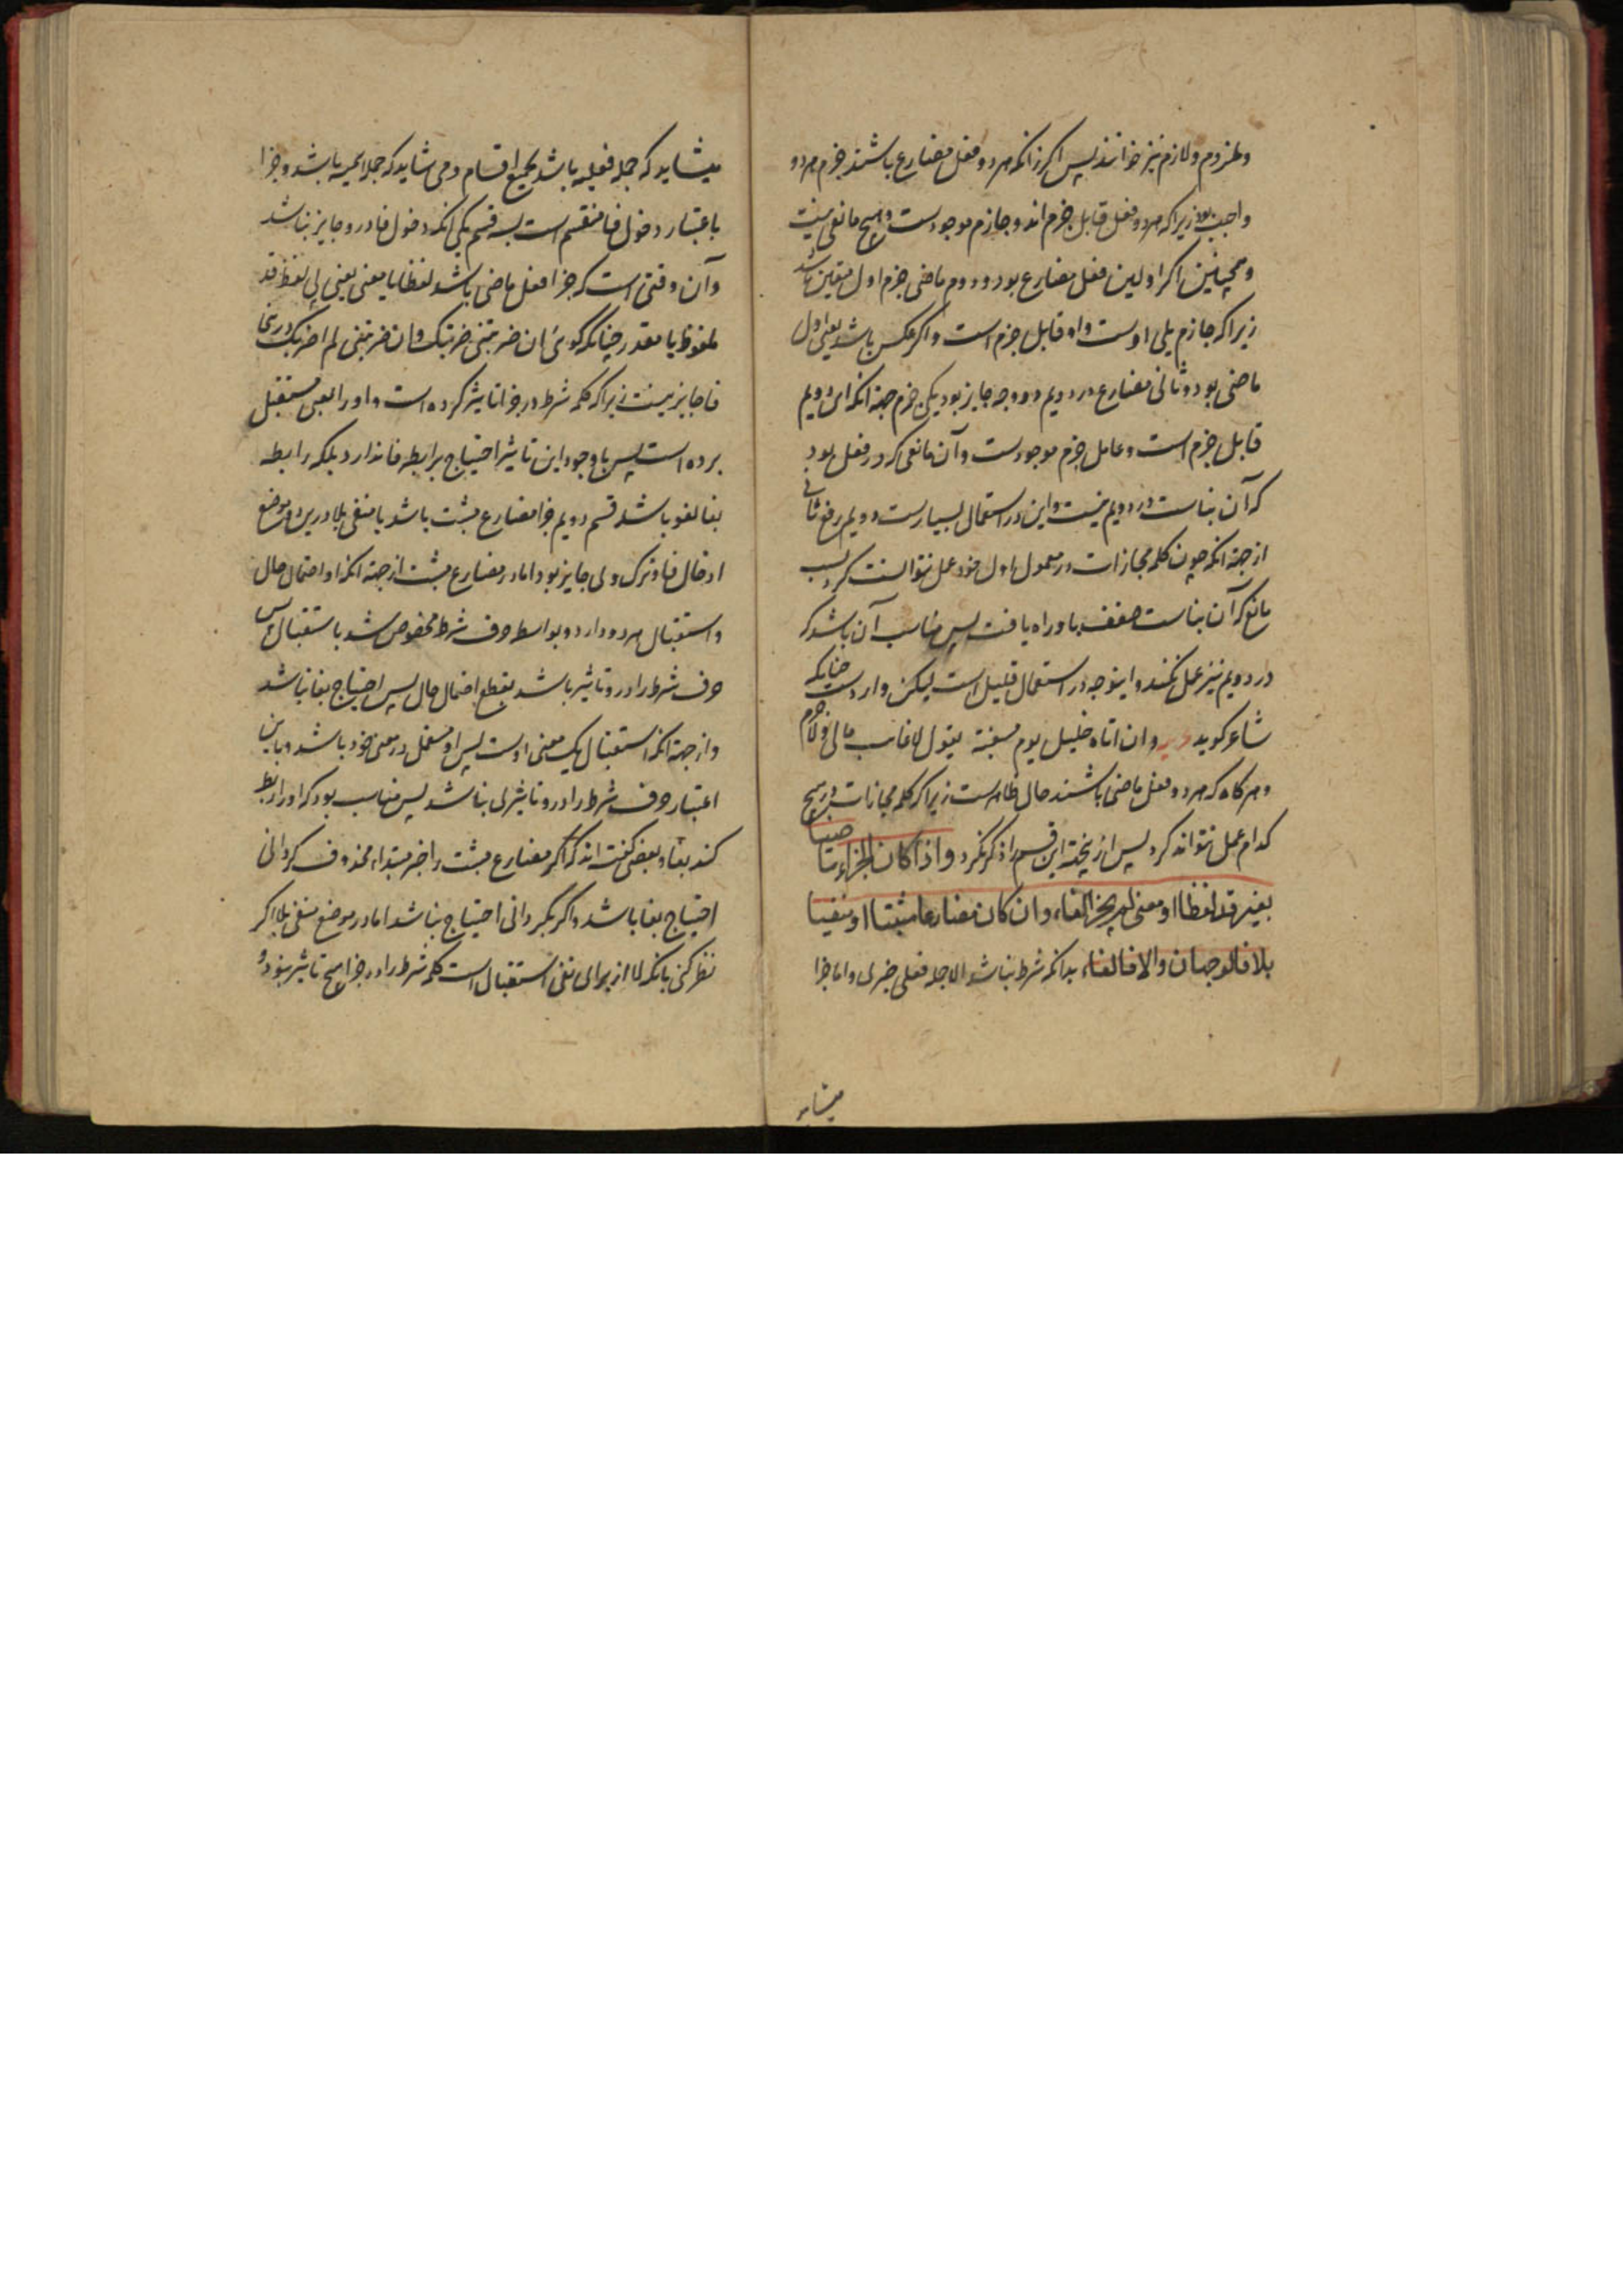 و ملزوم و لازم نیز خوانند پس اکر زانکه هر دو فعل مضارع باشند جزم هر دو
واجب بود زیراکه هر دو فعل قابل جزم اند و جازم موجودست و هیچ مانعی نیست
و همچنین اکر اولین فعل مضارع بود و دوم ماضی جزم اول متعین باشد
زیراکه جازم یلی اوست و او قابل جزم است و اکر عکس باشد یعنی اول
ماضی بود و ثانی مضارع در دویم دو وجه جایز بود یکی جزم جهة انکه این دویم
قابل جزم است و عامل جزم موجودست و آن مانعی که در فعل بود
که آن بناست در دویم نیست و این در استعمال بسیارست دویم رفع ثانی
از جهة انکه چون کلمه مجازات در معمول اول خود عمل نتوانست کرد بسبب
مانع که آن بناست ضعف باو راه یافت پس مناسب آن باشد که
در دویم نیز عمل نکند و اینوجه در استعمال قلیل است لیکن واردست چنانکه
شاعر کوید و ان اتاه خلیل یوم مسغبة یقول لا غائب مالی و لا حرم
و هر کاه که هر دو فعل ماضی باشند حال ظاهرست زیراکه کلمه مجازات در هیچ
کدام عمل نتواند کرد پس از ینجهة این قسم را ذکر نکرد و اذا کان الجزاء ماضیا
بغیر قد لفظا او معنی لم یجز الفاء و ان کان مضارعا مثبتا او منفیا
بلا فالوجهان و الا فالفاء بدانکه شرط نباشد الا جمله فعلی خبری و اما جزا
میشاید
میشاید که جمله فعلیه باشد بجمیع اقسام و می شاید که جمله اسمیه باشد و جزا
باعتبار دخول فا منقسم است بسه قسم یکی انکه دخول فا در و جایز نباشد
و آن وقتی است که جزا فعل ماضی باشد لفظا یا معنی یعنی بی لفظ قد
ملفوظ یا مقدر چنانکه کوئی ان ضربتنی ضربتک و ان ضربتنی لم اضربک درینجا
فا جایز نیست زیراکه کلمه شرط در جزا تاثیر کرده است و او را بمعنی مستقبل
برده است پس با وجود این تاثیر احتیاج برابطه فا ندارد بلکه رابطه
بفا لغو باشد قسم دویم جزا مضارع مثبت باشد یا منفی بلا درین دو موضع
ادخال فا و ترک وی جایز بود اما در مضارع مثبت از جهة انکه او احتمال حال
و استقبال هر دو دارد و بواسطه حرف شرط مخصوص شد باستقبال پس
حرف شرط را در و تاثیر باشد بقطع احتمال حال پس احتیاج بفا نباشد
و از جهة انکه استقبال یک معنی اوست پس او مستعمل در معنی خود باشد و باین
اعتبار حرف شرط را در و تاثیری نباشد پس مناسب بود که او را ربط
کند بفا و بعضی کفته اند که اکر مضارع مثبت را خبر مبتداء محذوف کردانی
احتیاج بفا باشد و اکر نکردانی احتیاج نباشد اما در موضع منفی بلا اکر
نظر کنی بانکه لا از برای نفی استقبال است کلمه شرط را در جزا هیچ تاثیر نبود و